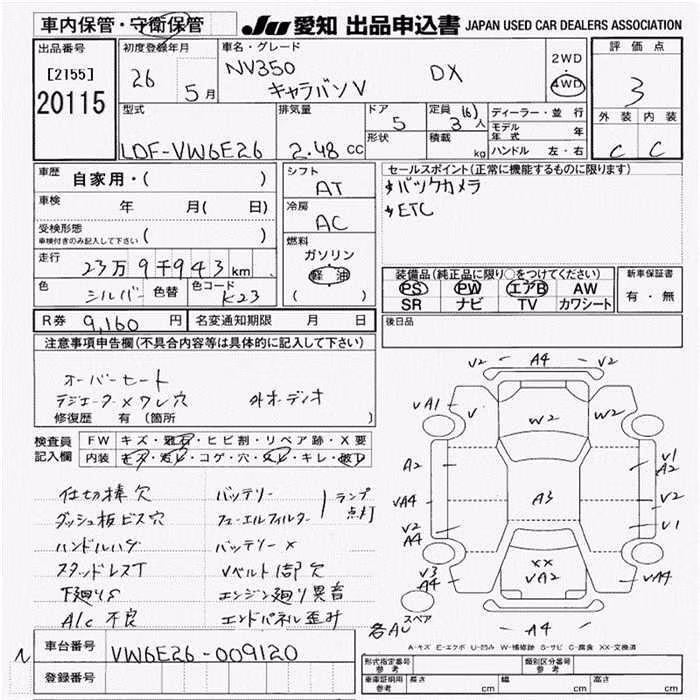 車内保管・守衛保管 JU 愛知 出品申込書 JAPAN USED CAR DEALERS ASSOCIATION
出品番号 初度登録年月 車名・グレード 評価点
[2155] 20115 26 5月 NV350 キャラバンV DX 2WD・4WD 3
外装 内装
C C
型式 排気量 ドア 定員 (6) ディーラー・並行
LDF-VW6E26 2.48cc 5 3人 モデル年式 年
形状 積載 kg ハンドル 左・右
車歴 自家用・( ) シフト AT セールスポイント(正常に機能するものに限ります)
車検 年 月( 日) 冷房 AC *バックカメラ
受検形態 車検付きのみ記入して下さい ( ) *ETC
走行 23万9千943km 燃料 ガソリン 軽油 ( )
装備品(純正品に限り○をつけてください) 新車保証書
PS PW エアB AW 有・無
SR ナビ TV カワシート
色 シルバー 色替 色コード K23
R券 9,160円 名変通知期限 月 日 後日品
注意事項申告欄(不具合内容等は具体的に記入して下さい)
オーバーヒート
ラジエーターメワレ穴 外オーディオ
修復歴 有(箇所 )
検査員記入欄 FW キズ・飛石・ヒビ割・リペア跡・X要
内装 キズ・汚レ・コゲ・穴・スレ・キレ・破レ
仕切棒欠 バッテリー ランプ点灯
ダッシュ板ビス穴 フューエルフィルター
ハンドルハゲ バッテリー×
スタッドレスT Vベルト1部欠
下廻りS エンジン廻り異音
A/c不良 エンドパネル歪み
車台番号 VW6E26-009120
登録番号
V2 A4 V2
VA1 V W2 W2
A2 V1 A2
VA4 A3 V2
V2 A4 V1
V3 A4 XX VA2 VA4
スペア
各AU A4
A-キズ E-エクボ U-凹み W-補修跡 S-サビ C-腐食 XX-交換済
形式指定番号 参考 類別区分番号 参考
車庫証明用 参考 長さ cm 幅 cm 高さ cm